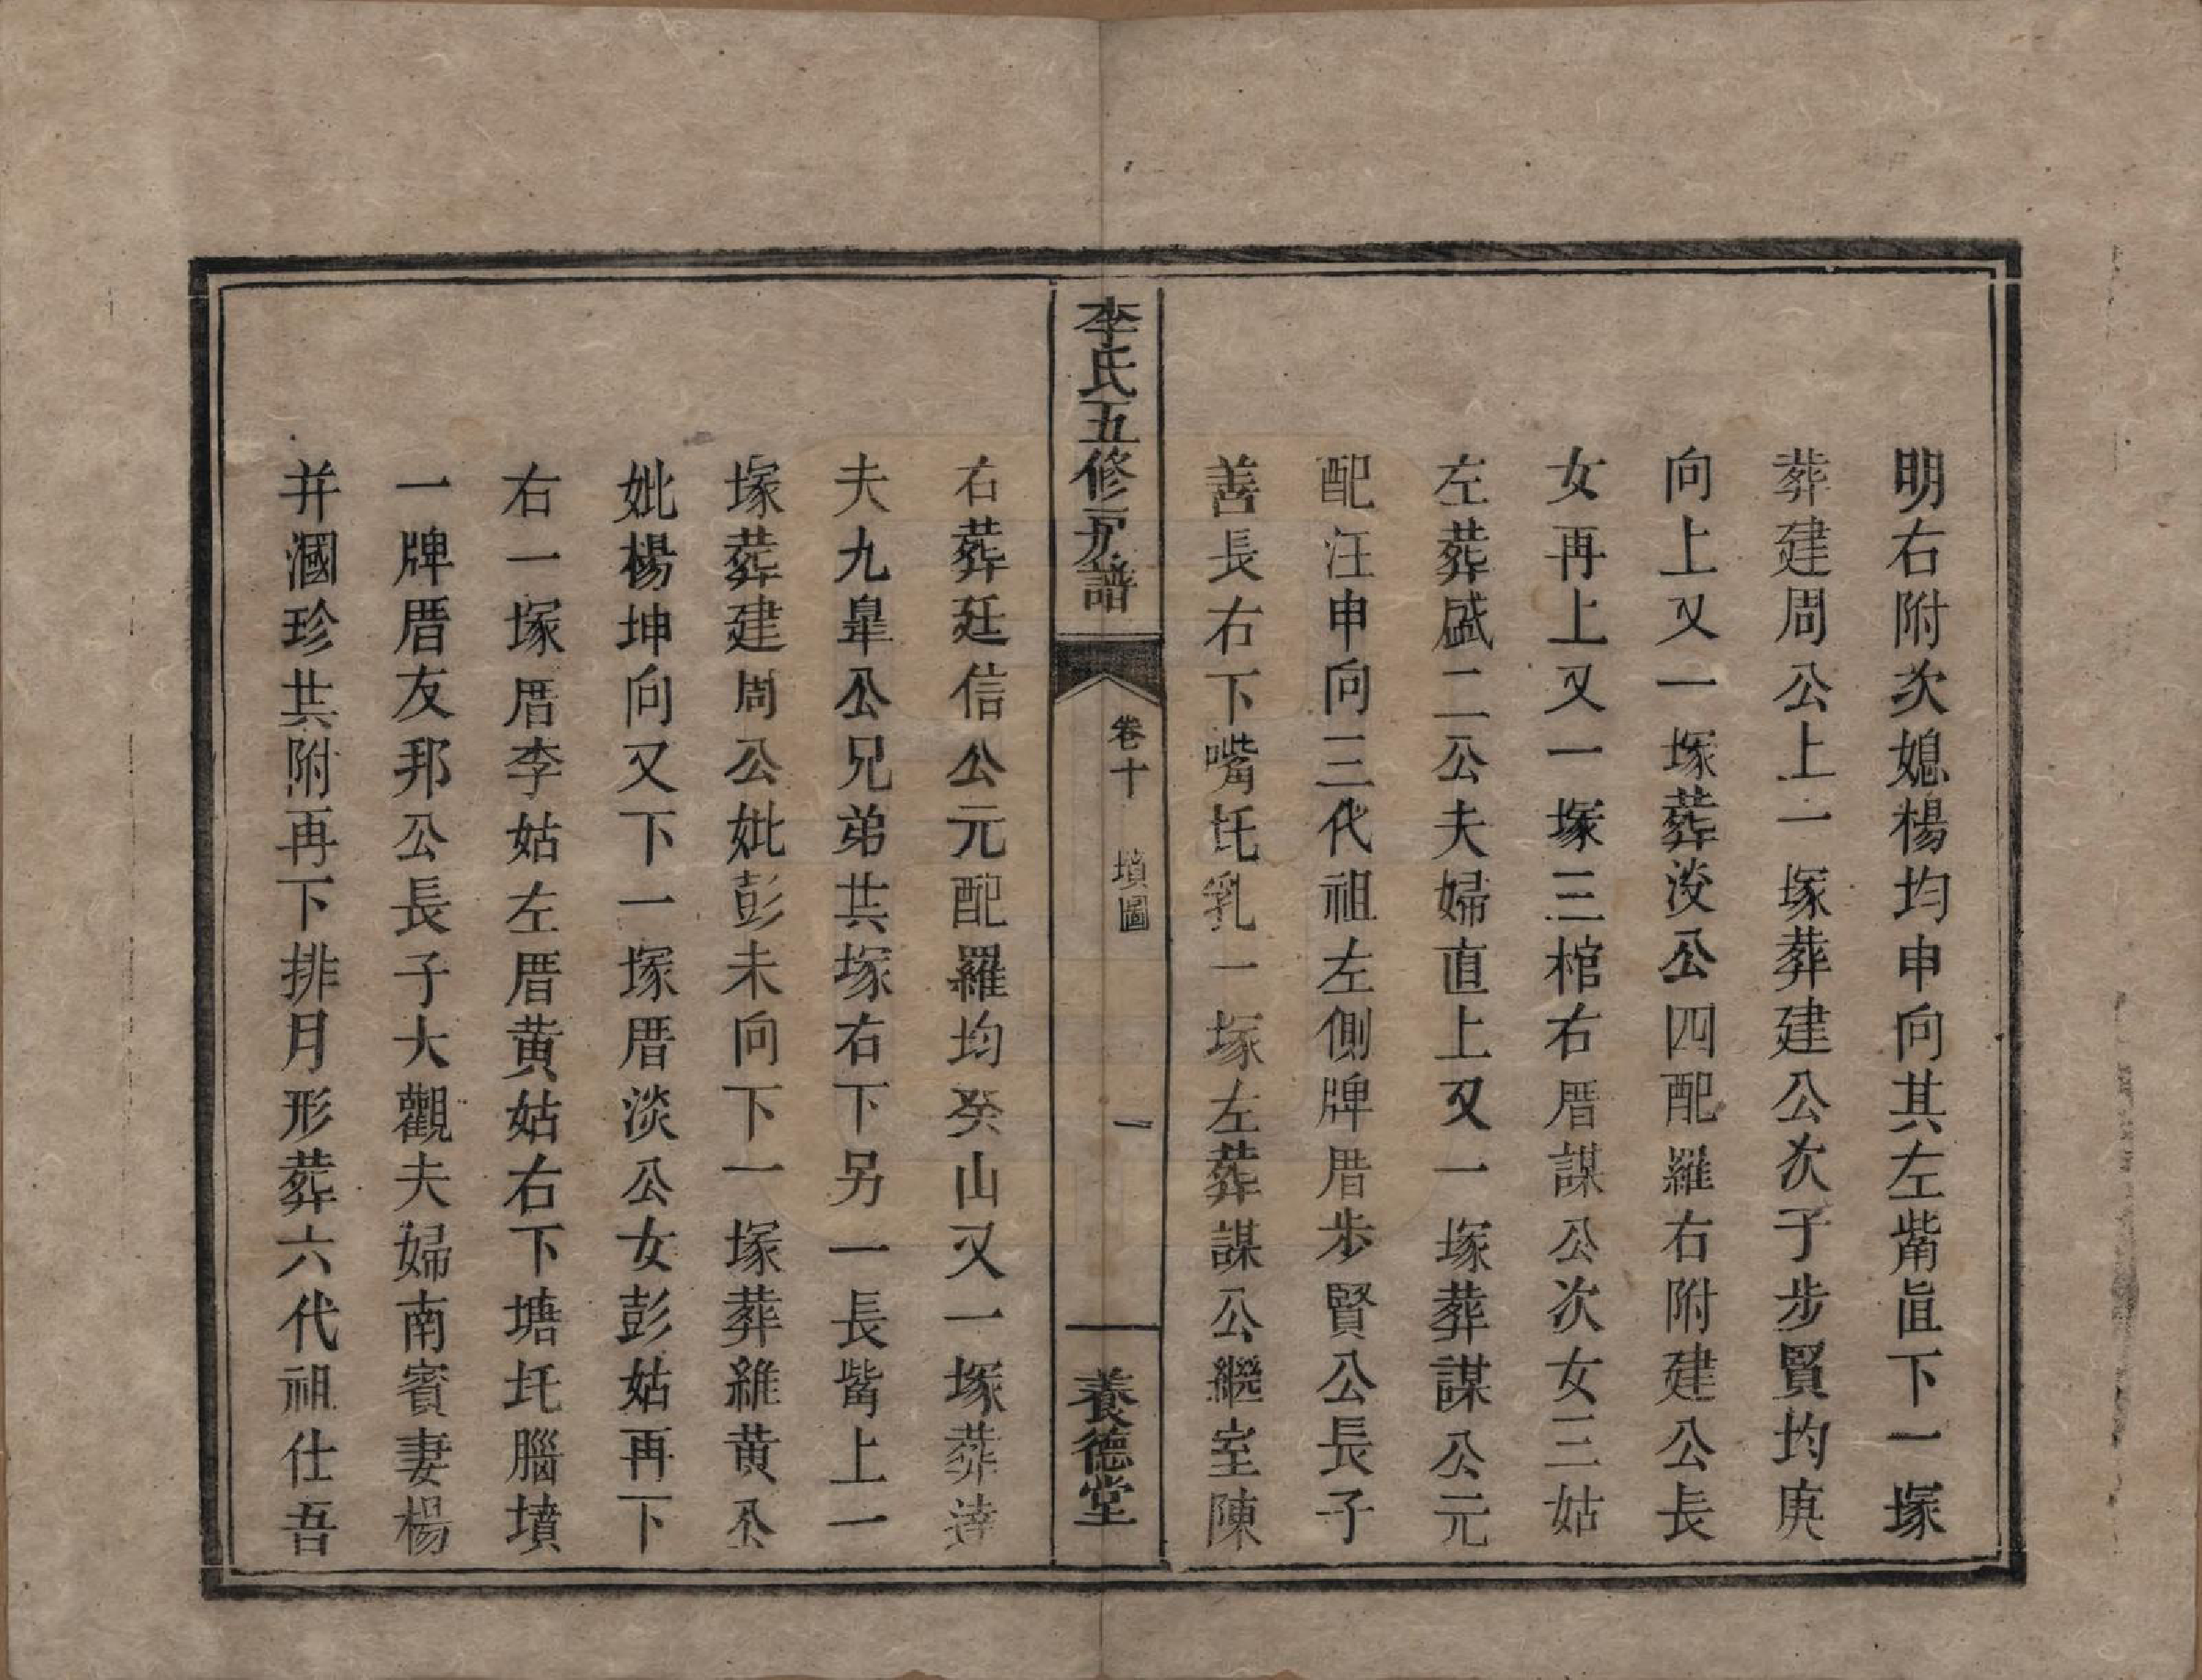 明右附次媳楊均申向其左嘴直下一塚
葬建周公上一塚葬建公次子步賢均庚
向上又一塚葬淡公四配羅右附建公長
女再上又一塚三棺右厝謀公次女三姑
左葬盛二公夫婦直上又一塚葬謀公元
配汪申向三代祖左側牌厝步賢公長子
善長右下嘴圫乳一塚左葬謀公繼室陳
李氏五修房譜
卷十
墳圖
一
養德堂
右葬廷信公元配羅均癸山又一塚葬達
夫九臯公兄弟共塚右下另一長嘴上一
塚葬建周公妣彭未向下一塚葬維黄公
妣楊坤向又下一塚厝淡公女彭姑再下
右一塚厝李姑左厝黄姑右下塘圫腦墳
一牌厝友邦公長子大觀夫婦南賓妻楊
并國珍共附再下排月形葬六代祖仕吾